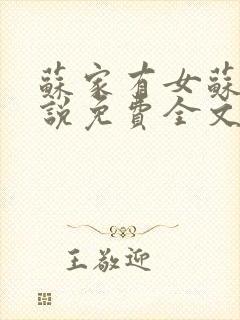 蘇家有女蘇
說免費全文
王敬迎